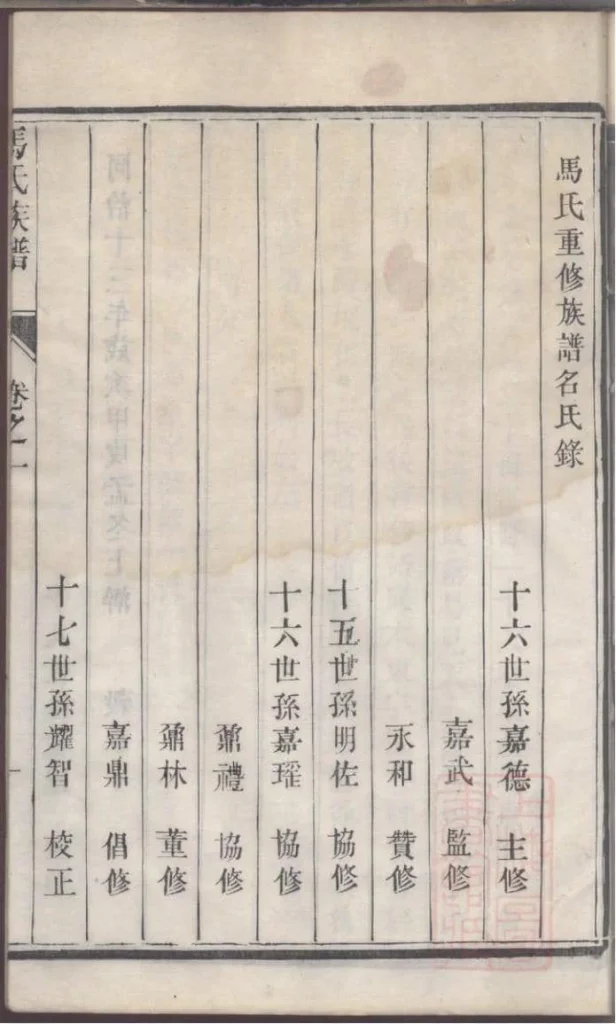 馬氏重修族譜名氏錄
十六世孫嘉德 主修
嘉武 監修
永和 贊修
十五世孫明佐 協修
十六世孫嘉瑤 協修
鼐禮 協修
鼐林 董修
嘉鼎 倡修
十七世孫耀智 校正
馬氏族譜 卷之一